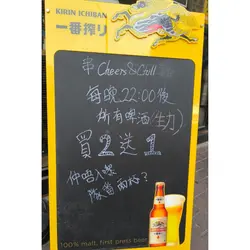 KIRIN ICHIBAN
一番搾り
串 Cheers & Grill
每晚22:00後
所有啤酒(生力)
買2送1
仲唔入嚟
100% malt, first press beer